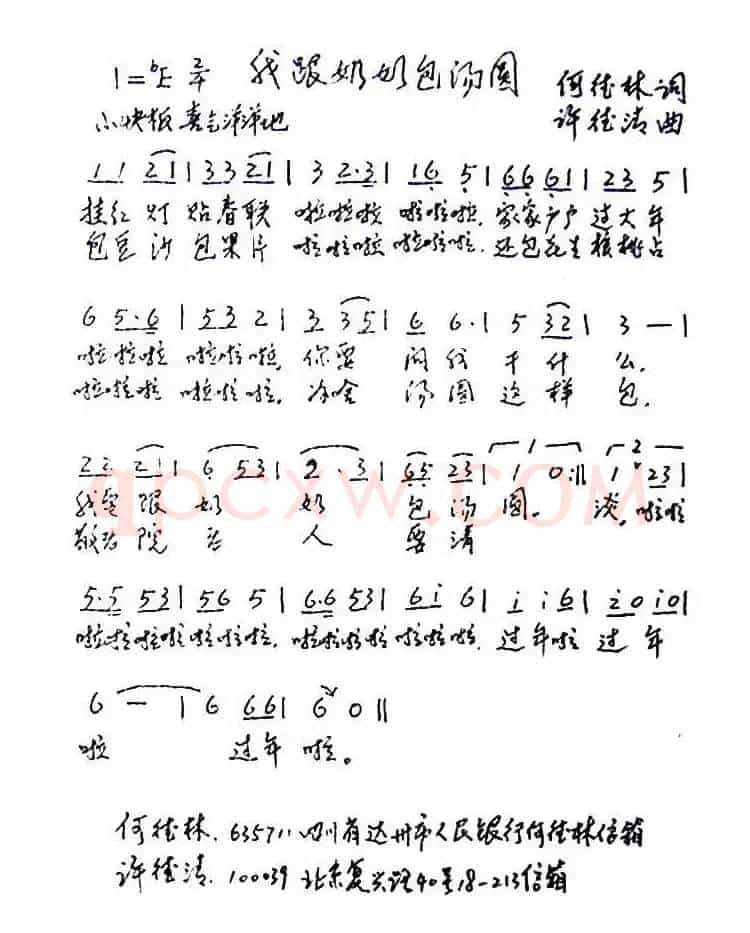 1=♭E 2/4 我跟奶奶包汤圆 何德林词
小快板 喜气洋洋地 许德清曲
1 1 2 1 | 3 3 2 1 | 3 2·3 | 1 6 5 | 6 6 6 1 | 2 3 5 |
挂红灯 贴春联 啦啦啦 啦啦啦. 家家户户 过大年
包豆沙 包果片 啦啦啦 啦啦啦. 还包花生核桃占
6 5·6 | 5 3 2 | 3 3 5 | 6 6· | 5 3 2 | 3 — |
啦啦啦 啦啦啦, 你要 问我 干什么.
啦啦啦 啦啦啦. 汤圆 这样包.
2 2 2 1 | 6 5 3 | 2·3 | 6 5 2 3 | 1 0 :|| 1 2 3 |
我要跟奶奶 包汤圆。 啦啦
敬老院老人要
5·5 5 3 | 5 6 5 | 6·6 5 3 | 6 i 6 | i i 6 | 2 0 i 0 |
啦啦啦啦啦啦啦. 啦啦啦啦啦啦啦. 过年啦 过年
6 — | 6 6 6 | 6 0 ||
啦 过年啦。
何德林. 635711 四川省达州市人民银行何德林信箱
许德清. 100039 北京复兴路40号18-213信箱
qpcxw.com